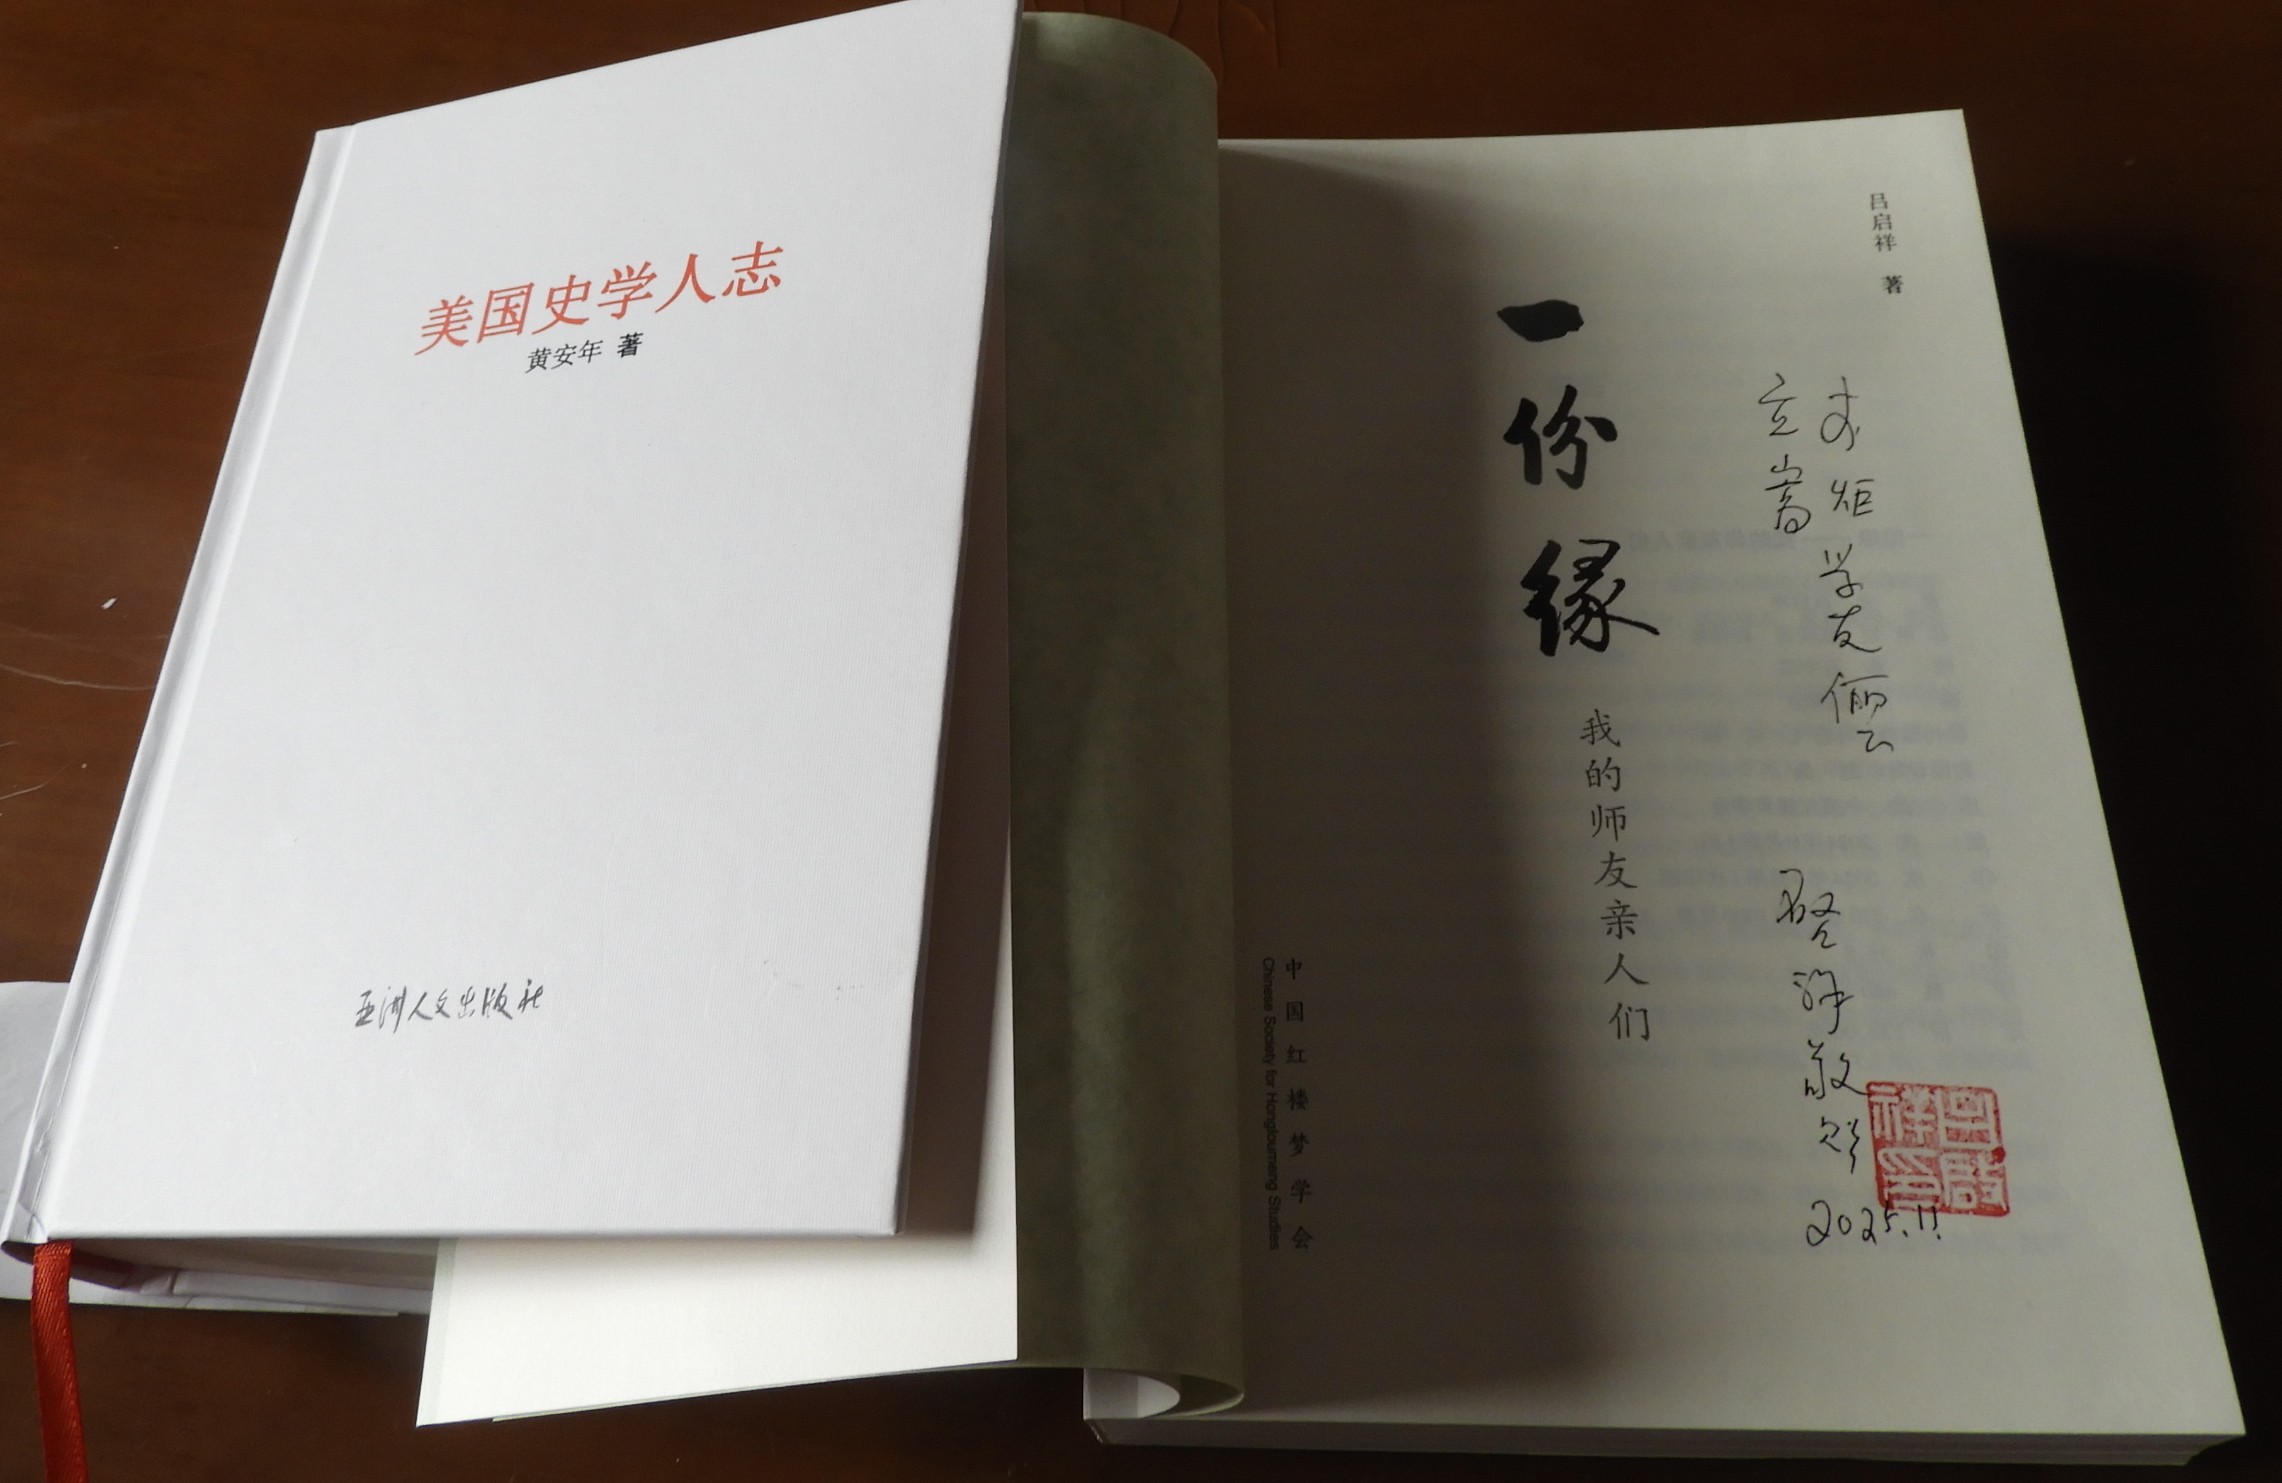 美国史学人志
黄安年 著
亚洲人文出版社
吕启祥 著
一份缘
我的师友亲人们
中国红楼梦学会
Chinese Society for Hongloumeng Studies
炬学友俪
立嵩
启祥敬赠
2025.11
吕启祥印